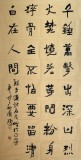 千錘萬鑿出深山烈
火焚燒若等閒粉身
碎骨全不怕要留清
白在人間